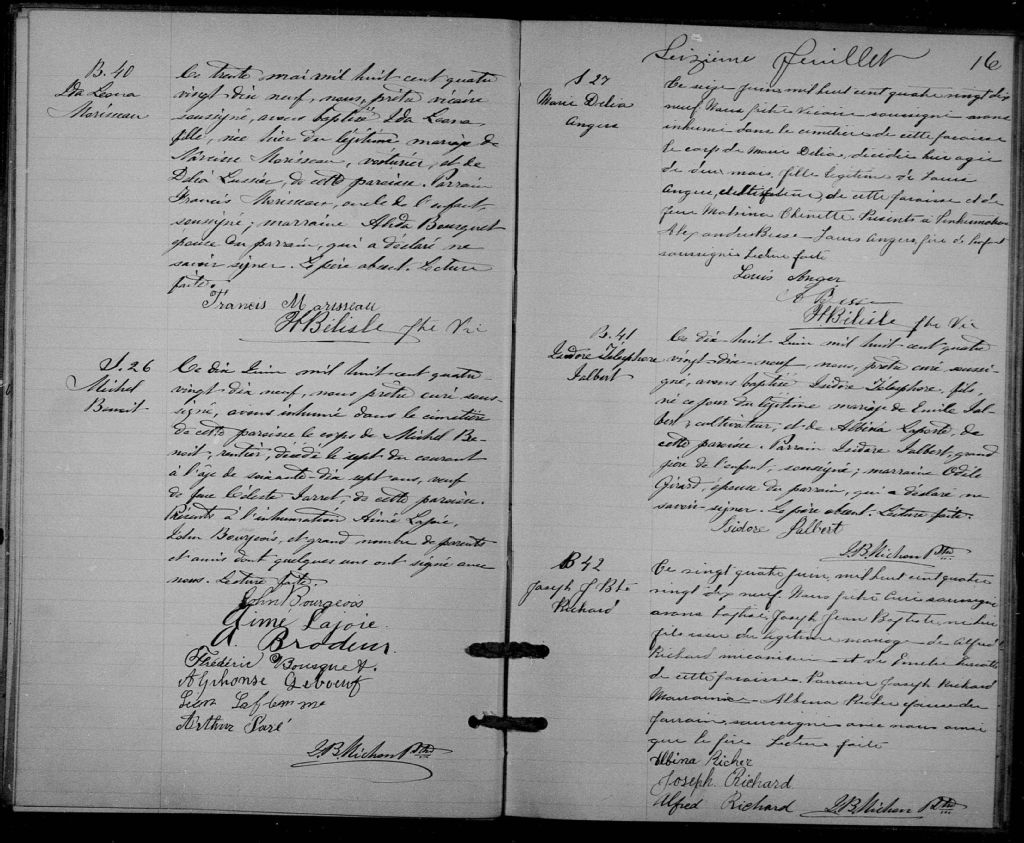 B. 40
Ida Leona
Morisseau
Ce trente mai mil huit cent quatre
vingt-dix neuf, nous, prêtre vicaire
soussigné, avons baptisé Ida Leona
fille, née hier du légitime mariage de
Narcisse Morisseau, voiturier, et de
Délia Lussier, de cette paroisse. Parrain
Francis Morisseau, oncle de l'enfant,
soussigné; marraine Alida Bousquet
épouse du parrain, qui a déclaré ne
savoir signer. Le père absent. Lecture
faite.
Francis Morisseau
H Bélisle ptre Vic
S. 26
Michel
Benoit
Ce dix Juin mil huit cent quatre-
vingt-dix neuf, nous prêtre curé sous-
signé, avons inhumé dans le cimetière
de cette paroisse le corps de Michel Be-
noit, rentier, décédé le sept du courant
à l'âge de soixante-dix sept ans, veuf
de feue Céleste Jarret, de cette paroisse.
Présents à l'inhumation Aimé Lajoie,
John Bourgeois, et grand nombre de parents
et amis dont quelques uns ont signé avec
nous. Lecture faite.
John Bourgeois
Aime Lajoie
A Brodeur
Frédéric Bousquet.
Alphonse Leboeuf
Leon Laflemme
Arthur Paré
J.B. Michon Ptre
Seizième feuillet 16
S 27
Marie Delia
Angers
Ce seize Juin mil huit cent quatre vingt dix
neuf Nous prêtre Vicaire soussigné avons
inhumé dans le cimetière de cette paroisse
le corps de Marie Delia, décédée hier agée
de deux mois, fille légitime de Louis
Angers, de cette paroisse et de
feue Chenette Présents à l'inhumation
Alexandre Besse Louis Angers père de l'enfant
soussignés Lecture faite
Louis Anger
A Besse
H Bélisle ptre Vic
B. 41
Isidore Télesphore
Jalbert
Ce dix-huit Juin mil huit-cent-quatre
vingt-dix-neuf, nous, prêtre curé soussi-
gné, avons baptisé Isidore Télesphore, fils,
né ce jour du légitime mariage de Emile Jal-
bert, cultivateur, et de Albina Laporte, de
cette paroisse. Parrain Isidore Jalbert, grand
père de l'enfant, soussigné; marraine Odile
Girard, épouse du parrain, qui a déclaré ne
savoir signer. Le père absent. Lecture faite.
Isidore Jalbert
J.B. Michon Ptre
B 42
Joseph J Bte
Richard
Ce vingt quatre Juin, mil huit cent quatre
vingt dix neuf. Nous prêtre Curé soussigné
avons baptisé Joseph Jean Baptiste, né hier
fils issu du légitime mariage de Alfred
Richard mecanicien et de Emelie
de cette paroisse. Parrain Joseph Richard
Marraine Albina Richer épouse du
parrain, soussignés avec nous ainsi
que le père Lecture faite
Albina Richer
Joseph Richard
Alfred Richard J.B. Michon Ptre